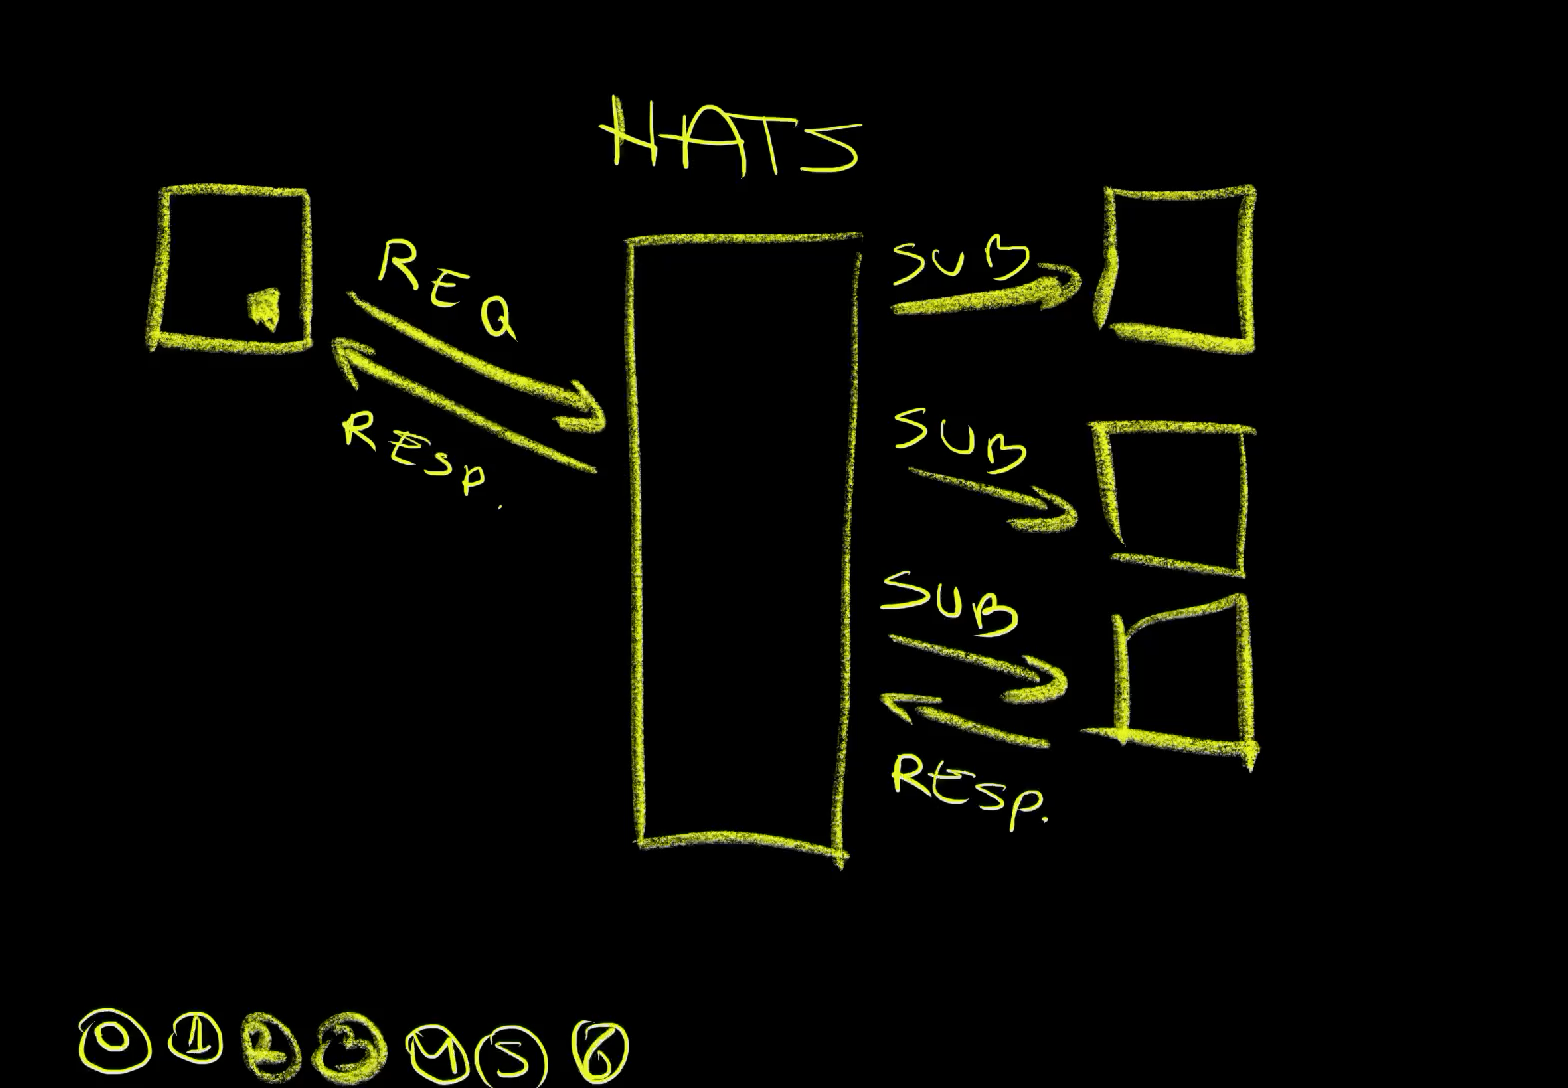 NATS
REQ
RESP.
SUB
SUB
SUB
RESP.
0 1 2 3 4 5 6